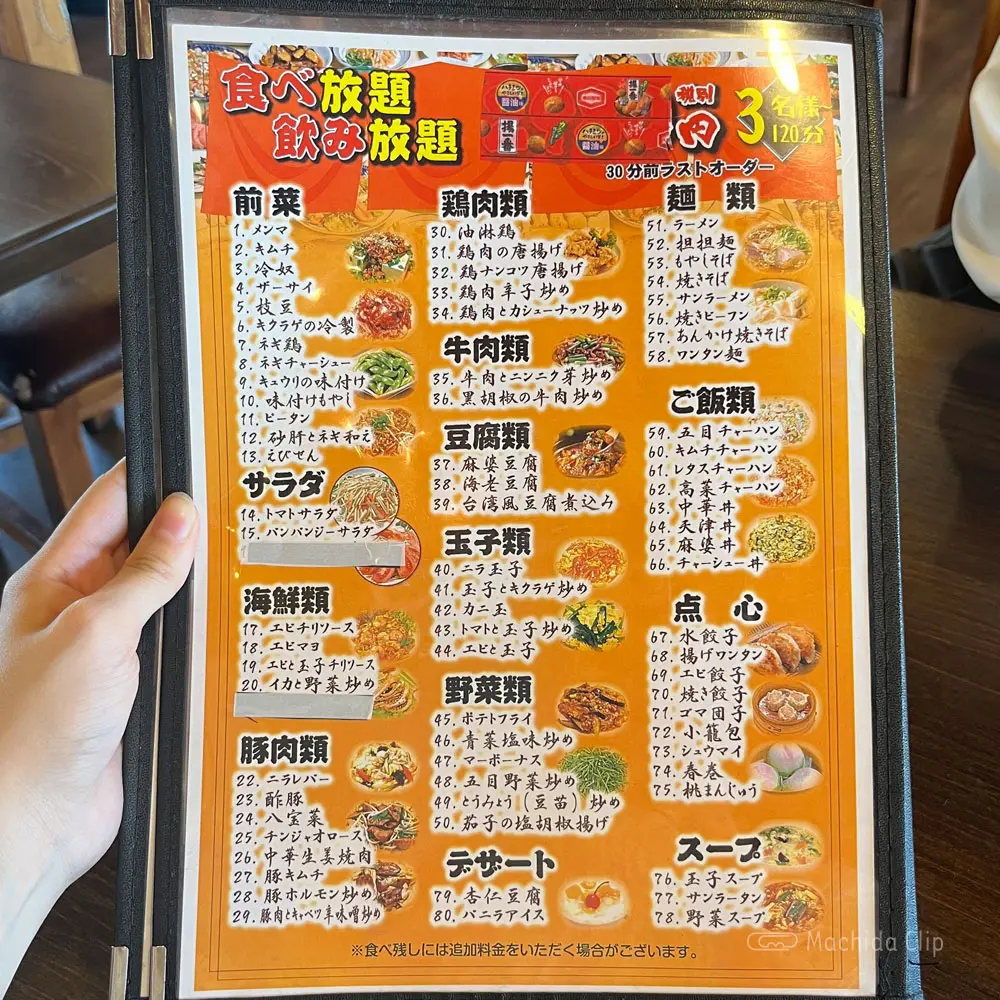 食べ放題
飲み放題
3名様~
120分
30分前ラストオーダー
前菜
1. メンマ
2. キムチ
3. 冷奴
4. ザーサイ
5. 枝豆
6. キクラゲの冷製
7. ネギ鶏
8. ネギチャーシュー
9. キュウリの味付け
10. 味付けもやし
11. ピータン
12. 砂肝とネギ和え
13. えびせん
サラダ
14. トマトサラダ
15. バンバンジーサラダ
海鮮類
17. エビチリソース
18. エビマヨ
19. エビと玉子チリソース
20. イカと野菜炒め
豚肉類
22. ニラレバー
23. 酢豚
24. 八宝菜
25. チンジャオロース
26. 中華生姜焼肉
27. 豚キムチ
28. 豚ホルモン炒め
29. 豚肉とキャベツ辛味噌炒め
鶏肉類
30. 油淋鶏
31. 鶏肉の唐揚げ
32. 鶏ナンコツ唐揚げ
33. 鶏肉辛子炒め
34. 鶏肉とカシューナッツ炒め
牛肉類
35. 牛肉とニンニク芽炒め
36. 黒胡椒の牛肉炒め
豆腐類
37. 麻婆豆腐
38. 海老豆腐
39. 台湾風豆腐煮込み
玉子類
40. ニラ玉子
41. 玉子とキクラゲ炒め
42. カニ玉
43. トマトと玉子炒め
44. エビと玉子
野菜類
45. ポテトフライ
46. 青菜塩味炒め
47. マーボーナス
48. 五目野菜炒め
49. とうみょう(豆苗)炒め
50. 茄子の塩胡椒揚げ
デザート
79. 杏仁豆腐
80. バニラアイス
麺類
51. ラーメン
52. 担担麺
53. もやしそば
54. 焼きそば
55. サンラーメン
56. 焼きビーフン
57. あんかけ焼きそば
58. ワンタン麺
ご飯類
59. 五目チャーハン
60. キムチチャーハン
61. レタスチャーハン
62. 高菜チャーハン
63. 中華丼
64. 天津丼
65. 麻婆丼
66. チャーシュー丼
点心
67. 水餃子
68. 揚げワンタン
69. エビ餃子
70. 焼き餃子
71. ゴマ団子
72. 小籠包
73. シュウマイ
74. 春巻
75. 桃まんじゅう
スープ
76. 玉子スープ
77. サンラータン
78. 野菜スープ
※食べ残しには追加料金をいただく場合がございます。
Machida Clip